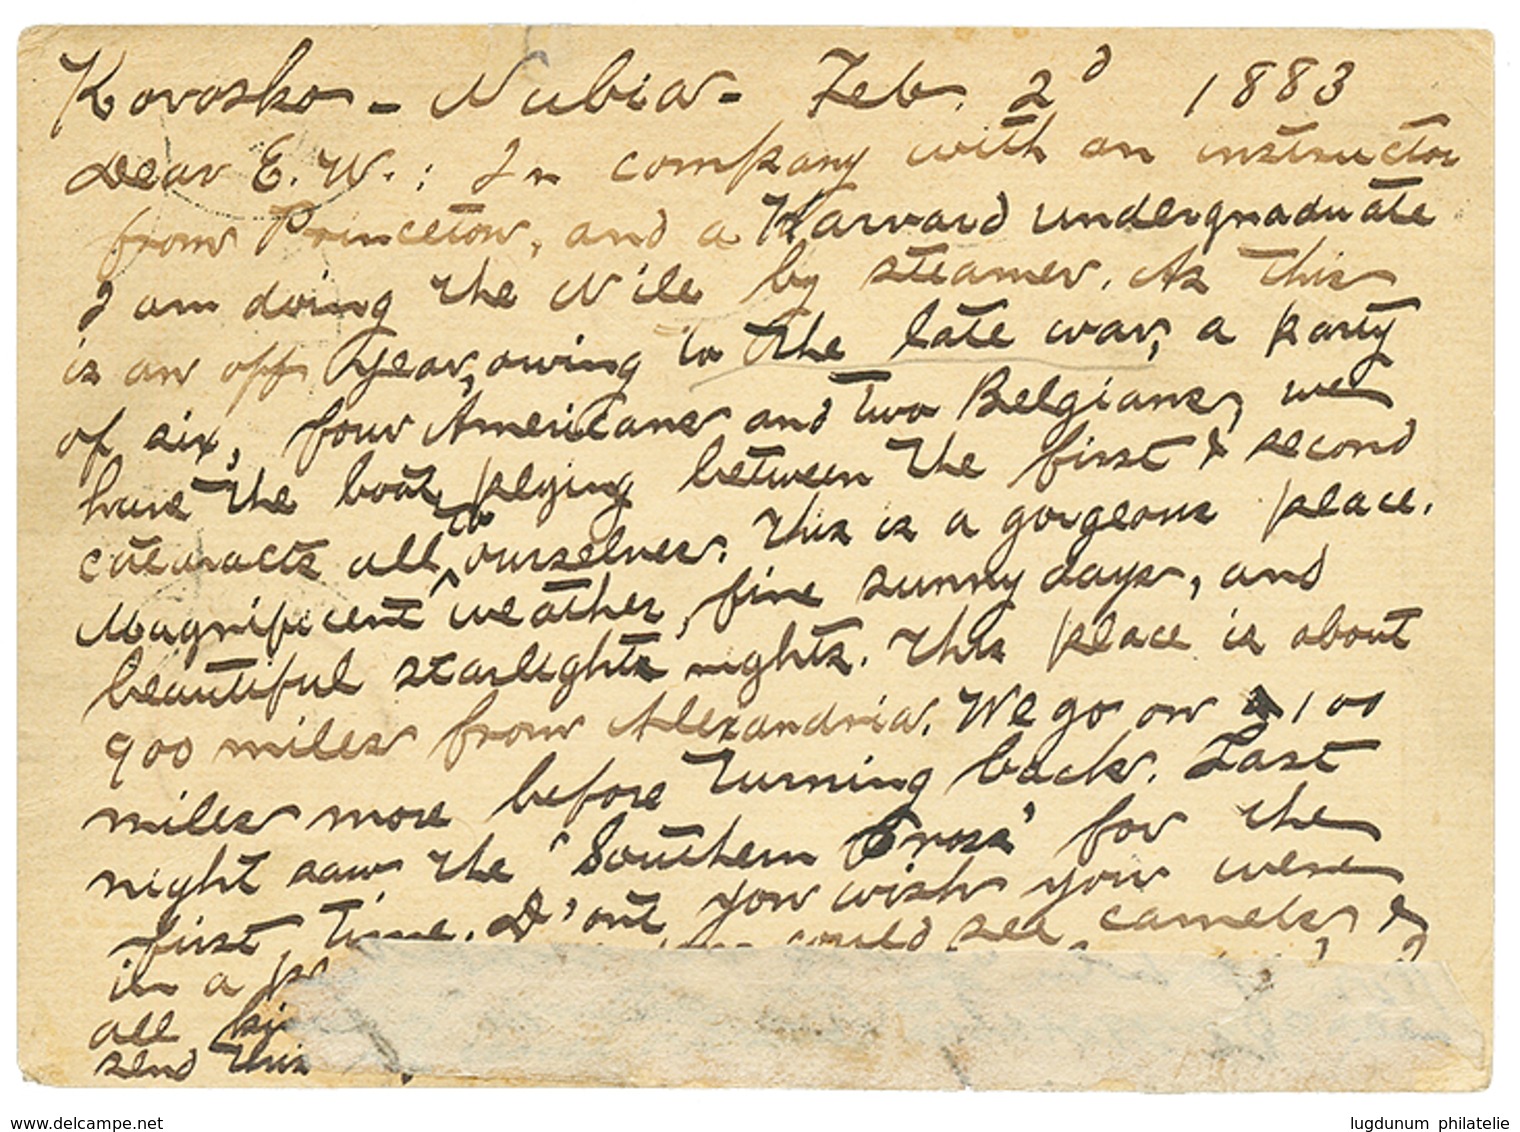 Korosko - Nubia - Feb. 2d 1883
Dear E. W. : In company with an instructor
from Princeton, and a Harvard undergraduate
I am doing the Nile by steamer. As this
is an off year, owing to the late war, a party
of six, four Americans and two Belgians, we
have the boat, plying between the first & second
cataracts all to ourselves. This is a gorgeous place.
Magnificent weather, fine sunny days, and
beautiful starlights nights. This place is about
900 miles from Alexandria. We go on 100
miles more before turning back. Last
night saw the 'Southern Cross' for the
first time. D'ont you wish you were
in a could see camels, &
all
send this
www.delcampe.net
lugdunum philatelie